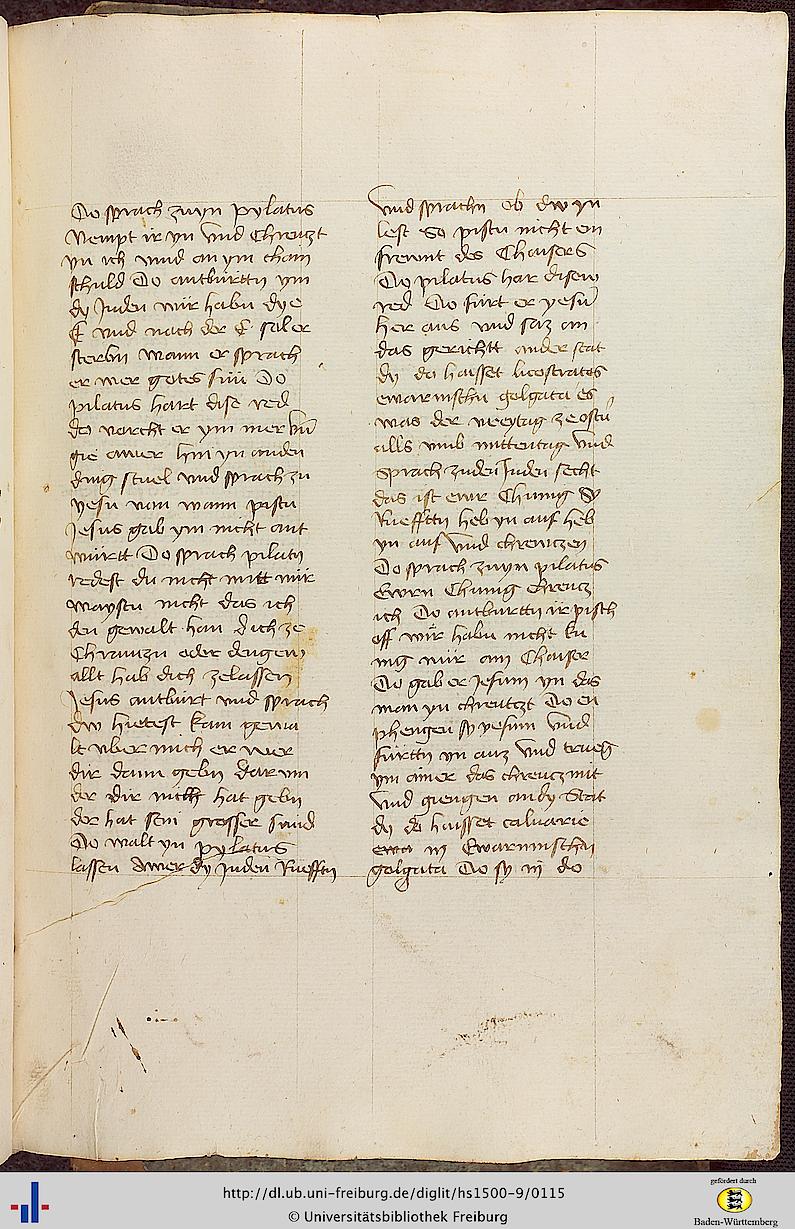 Do sprach zu yn pylatus
Nempt ir yn vnd Chreuzt
yn ich vind an ym chain
schuld Do antburttn ym
dy Juden wir habn dye
E vnd nach der E sal er
sterbn wann er sprach
er wer gotes sun Do
pilatus hart dise red
do vorcht er ym mer vnd
gie awer hin yn an den
ding stuel vnd sprach zu
yesu von wann pistu
Jesus gab ym nicht ant
wurtt Do sprach pilatus
redest du nicht mitt mir
waystu nicht das ich
den gewalt han dich ze
Chrauczn oder den gew
allt hab dich ze lassen
Jesus antburt vnd sprach
dw hietest kain gewa
lt vber mich er wer
dir dann gebn darum
der dir mich hat gebn
der hat sein grosser sund
Do walt yn pylatus
lassen Awer dy Juden Ruefftn
Vnd sprachn ob dw yn
lest So pistu nicht ein
frewnt des Chaisers
Do pilatus hart disew
red Do furt er yesu
her aus vnd saz an
das gerichtt an der stat
dy do haisset licostratos
ewarinischn golgata es
was der veeytag ze ostn
alls vmb mittentag vnd
sprach zu den Juden secht
das ist ewr Chunig Sy
Ruefftn heb yn auf heb
yn auf vnd chreuczen
Do sprach zu yn pilatus
Ewrn Chunig chreucz
ich Do antburttn ir pisch
off wir habn nicht ku
nig nur ain Chaiser
Do gab er Jesum yn das
man yn chreutzt Do en
phengen sy yesum vnd
furttn yn auz vnd trueg
ym ainer das chreucz mit
vnd giengen an dy Stat
dy do haisset caluarie
in Ewarinischn
golgata Do sy in do
http://dl.ub.uni-freiburg.de/diglit/hs1500-9/0115
© Universitätsbibliothek Freiburg
gefördert durch
Baden-Württemberg